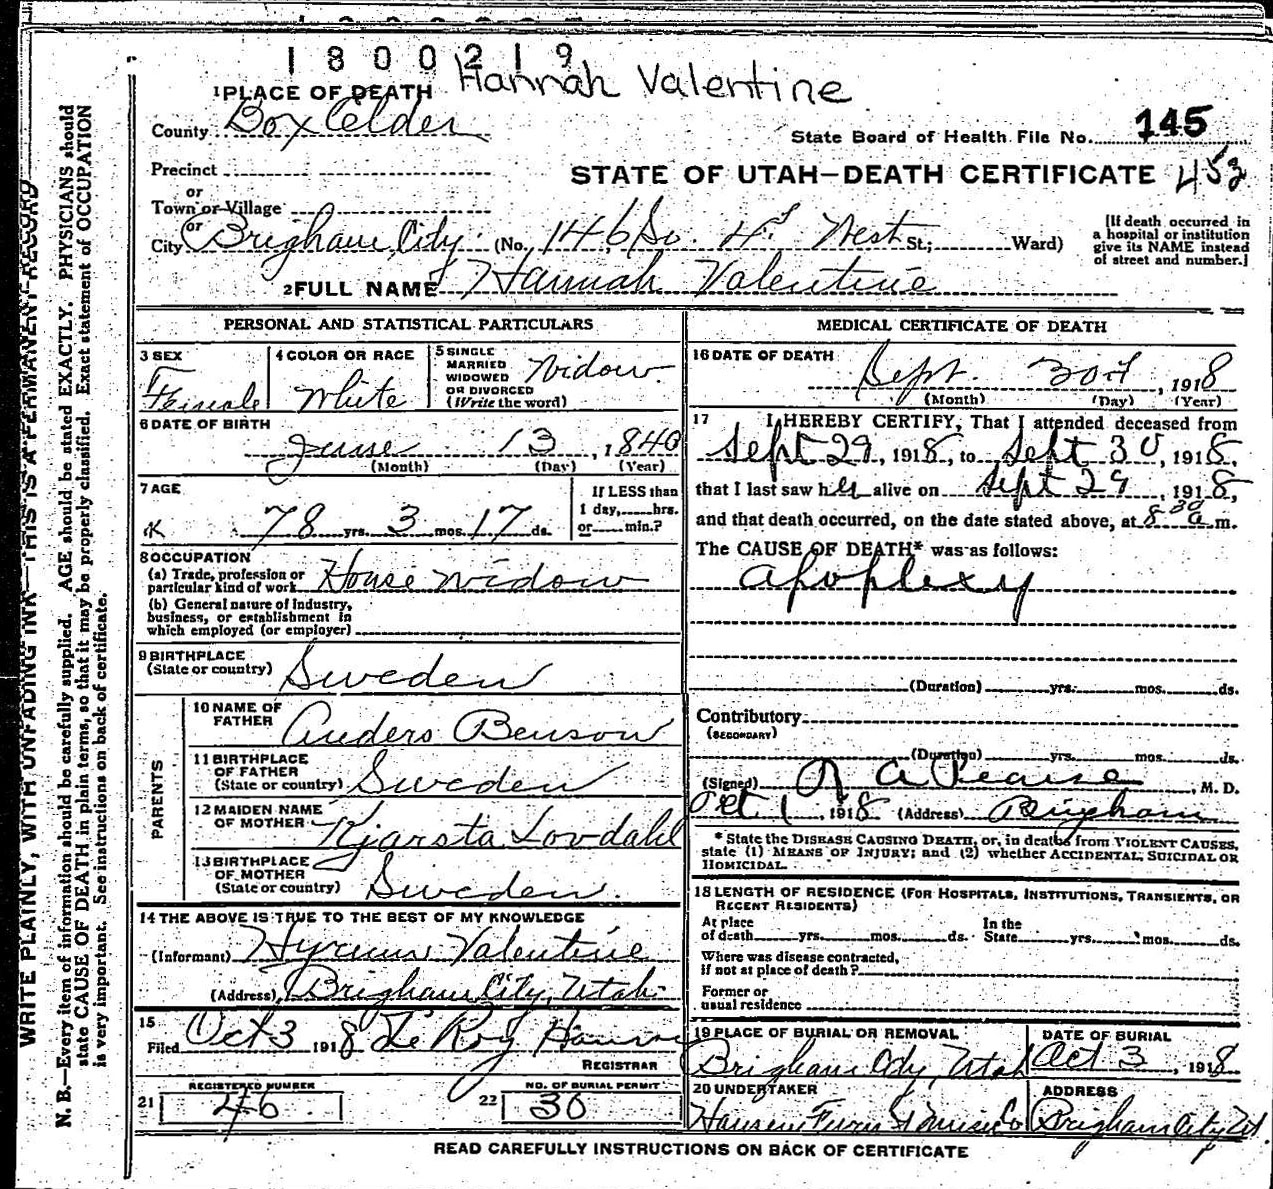 1800219
Hannah Valentine
1 PLACE OF DEATH
County Box Elder
State Board of Health File No. 145
Precinct
STATE OF UTAH—DEATH CERTIFICATE 452
or
Town or Village
or
City Brigham City (No. 146 So. 4th West St.; Ward)
[If death occurred in a hospital or institution give its NAME instead of street and number.]
2 FULL NAME Hannah Valentine
PERSONAL AND STATISTICAL PARTICULARS
3 SEX Female
4 COLOR OR RACE White
5 SINGLE MARRIED WIDOWED OR DIVORCED (Write the word) Widow.
6 DATE OF BIRTH
June 13, 1840
(Month) (Day) (Year)
7 AGE
78 yrs. 3 mos. 17 ds.
If LESS than 1 day, hrs. or min.?
8 OCCUPATION
(a) Trade, profession or particular kind of work House widow
(b) General nature of Industry, business, or establishment in which employed (or employer)
9 BIRTHPLACE (State or country) Sweden
PARENTS
10 NAME OF FATHER Anders Benson
11 BIRTHPLACE OF FATHER (State or country) Sweden
12 MAIDEN NAME OF MOTHER Kjarsta Lovdahl
13 BIRTHPLACE OF MOTHER (State or country) Sweden.
14 THE ABOVE IS TRUE TO THE BEST OF MY KNOWLEDGE
(Informant) Hyrum Valentine
(Address) Brigham City, Utah.
15
Filed Oct 3 1918 Le Roy
REGISTRAR
REGISTERED NUMBER
21 46
NO. OF BURIAL PERMIT
22 30
MEDICAL CERTIFICATE OF DEATH
16 DATE OF DEATH
Sept. 30th, 1918
(Month) (Day) (Year)
17 I HEREBY CERTIFY, That I attended deceased from
Sept 29, 1918, to Sept 30, 1918,
that I last saw her alive on Sept 29, 1918,
and that death occurred, on the date stated above, at 8 30 a.m.
The CAUSE OF DEATH* was as follows:
apoplexy
(Duration) yrs. mos. ds.
Contributory
(SECONDARY)
(Duration) yrs. mos. ds.
(Signed) R A Pearse, M. D.
Oct 1, 1918 (Address) Brigham
* State the DISEASE CAUSING DEATH, or, in deaths from VIOLENT CAUSES,
state (1) MEANS OF INJURY; and (2) whether ACCIDENTAL, SUICIDAL OR
HOMICIDAL.
18 LENGTH OF RESIDENCE (FOR HOSPITALS, INSTITUTIONS, TRANSIENTS, OR
RECENT RESIDENTS)
At place of death yrs. mos. ds. In the State yrs. mos. ds.
Where was disease contracted,
if not at place of death?
Former or
usual residence
19 PLACE OF BURIAL OR REMOVAL
Brigham City, Utah
DATE OF BURIAL
Oct 3, 1918
20 UNDERTAKER
Hansen Furn & Co
ADDRESS
Brigham City Ut
READ CAREFULLY INSTRUCTIONS ON BACK OF CERTIFICATE
WRITE PLAINLY, WITH UNFADING INK—THIS IS A PERMANENT RECORD
N. B.—Every item of information should be carefully supplied. AGE should be stated EXACTLY. PHYSICIANS should
state CAUSE OF DEATH in plain terms, so that it may be properly classified. Exact statement of OCCUPATION
is very important. See instructions on back of certificate.